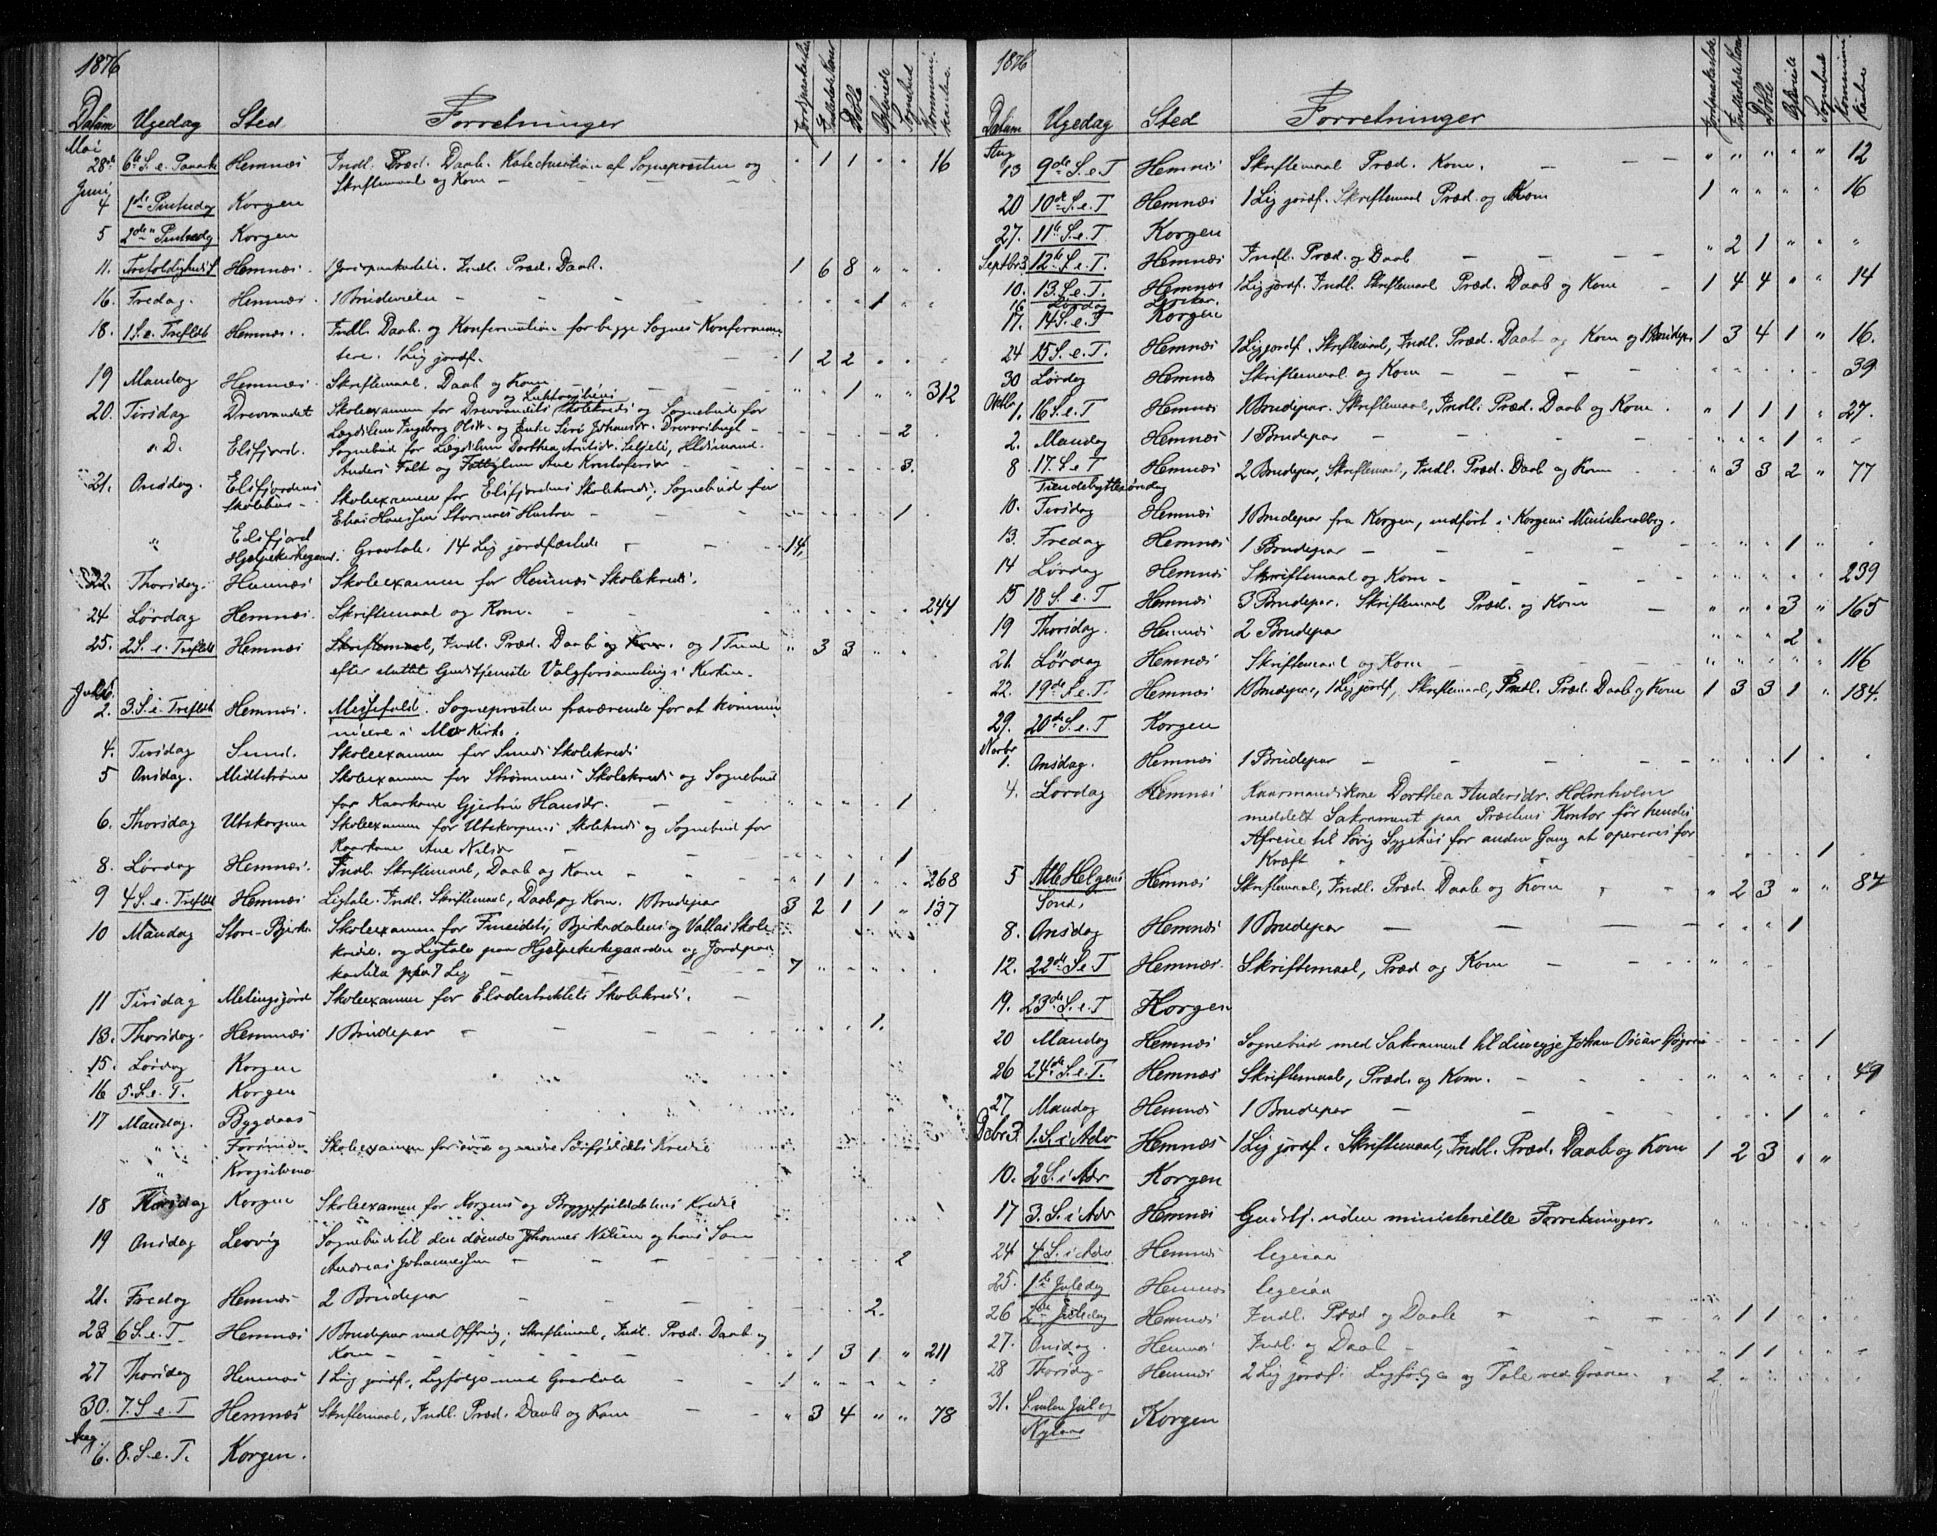 1876
Datum Ugedag Sted Forretninger Jordpaakastelse Indledede Koner Döbte Ægteviede Sognebud Kommunikanter
Mai
28de 6te S. e. Paaske Hemnæs Indl. Præd. Daab. Katechisation af Sognepræsten og " 1 1 " " 16
Skriftemaal og Kom
Juni
4 1ste Pintsedag Korgen
5 2den Pintsedg Korgen
11. Trefoldigheds S Hemnæs. 1 Jordpaakastelse. Indl. Præd. Daab. 1 6 8 " "
16. Fredag. Hemnæs. 1 Brudevielse 1
18. 1 S. e. Trefldt Hemnæs. Indl. Daab. og Konfirmation for begge Sognes Konfirman-
tere. 1 Lig jordf. 1 2 2
19 Mandag Hemnæs. Skriftemaal. Daab og Kom 1 312
20. Tirsdag Drevvandet Skoleexamen for Drevvandets Skolekreds og Sognebud for
Lægdslem Ingeborg Olsdr. og Enke Siri Johansdr. 2
" D. Elsfjord. Sognebud for Lægdslem Dorthea
Anders Falk og Fattiglem Ane Kristofersdr 3.
21. Onsdag. Elsfjordens Skoleexamen for Elsfjordens Skolekreds; Sognebud for
Skolehus Elias Hansen Stornæs Hustru 1
" Elsfjord
Hjælpekirkegaard. Gravtale. 14 Lig jordfæstede 14,
22. Thorsdag. Hemnæs Skoleexamen for Hemnæs Skolekreds.
24 Lørdag Hemnæs. Skriftemaal og Kom. 244
25. 2 S. e. Trefldt Hemnæs Skriftemaal, Indl. Præd. Daab og Kom. og 1 " 3 3 " "
efter sluttet Gudstjeneste Valgforsamling i Kirken.
Juli
2. 3. S. e. Trefldt Hemnæs. Messefald. Sognepræsten fraværende for at kommu-
nicere i Mo Kirke.
4. Tirsdag Sund. Skoleexamen for Sunds Skolekreds
5 Onsdag. Midtstrømn Skoleexamen for Strømmens Skolekreds og Sognebud
for Kaarkone Gjertru Hansdr. 1
6. Thorsdag Utskorpen Skoleexamen for Utskorpens Skolekreds og Sognebud for
Kaarkone Ane Nilsdr 1
8. Lørdag Hemnæs. Indl. Skriftemaal, Daab og Kom " 1 1 " " 268
9 4 S. e. Trefldt Hemnæs Ligtale. Indl. Skriftemaal, Daab og Kom. 1 Brudepar 3 2 1 1 " 137
10 Mandag Store-Bjerka Skoleexamen for Fineidets, Bjerkadalens og Vallas Skole-
kredse. og Ligtale paa Hjælpekirkegaarden og Jordpaa-
kastelse paa 7 Lig 7
11 Tirsdag Skoleexamen for Skolekreds.
13. Thorsdag. Hemnæs 1 Brudepar 1.
15. Lördag Korgen
16 5. S. e. T. Korgen
17 Mandag. Bygdaas
" Forsmoen Skoleexamen for övre og nedre Kredse
"
18 Tirsdag Korgen Skoleexamen for Korgens og Bryggfjelddalens Kredse
19 Onsdag Leervig Sognebud til den döende Johannes Nilsen og hans Søn
Andreas Johannessen 2
21. Fredag Hemnæs 2 Brudepar 2.
23 6 S. e. T Hemnæs 1 Brudepar med Offring; Skriftemaal, Indl. Præd. Daab og
Kom " 1 3 1 " 211
27 Thorsdag Hemnæs 1 Lig jordf., Ligfølge med Gravtale 1
30. 7. S. e. T Hemnæs Skriftemaal, Indl. Præd. Daab og Kom " 3 4 " " 78
Aug
6. 8. S. e. T. Korgen.
1876
Datum Ugedag Sted Forretninger Jordpaakastelse Indledede Kon Döbte Ægteviede Sognebud Kommunikanter
Aug
13 9de S. e. T Hemnæs Skriftemaal Præd. Kom. " " " " " 12
20 10de S. e. T Hemnæs 1 Lig jordf. Skriftemaal Præd. og Kom 1 " " " " 16
27. 11te S. e. T. Korgen
Septbr 3. 12te S. e. T. Hemnæs Indl. Præd. og Daab " 2 1 " " "
10. 13. S. e. T. Hemnæs 1 Lig jordf. Indl. Skriftemaal Præd. Daab og Kom 1 4 4 " " 14
16. Lørdag
17. 14 S. e. T Korgen
24 15 S. e. T. Hemnæs 1 Lig jordf. Skriftemaal, Indl. Præd. Daab og Kom og 1 Brudepr 1 3 4 1 " 16.
30 Lørdag Hemnæs Skriftemaal og Kom 39
Octbr
1. 16 S. e. T Hemnæs 1 Brudepar. Skriftemaal, Indl. Præd. Daab og Kom. " 1 1 1 " 27.
2. Mandag Hemnæs 1 Brudepar 1
8 17. S. e T Hemnæs 2 Brudepar, Skriftemaal, Indl. Præd. Daab og Kom " 3 3 2 " 77
Tiendebyttesöndag
10. Tirsdag Hemnæs 1 Brudepar fra Korgen, indført i Korgens Ministerialbog.
13. Fredag Hemnæs 1 Brudepar 1
14 Lördag Hemnæs Skriftemaal og Kom 239
15 18 S. e. T Hemnæs 3 Brudepar. Skriftemaal Præd. og Kom " " " 3 " 165
19 Thorsdag. Hemnæs 2 Brudepar 2
21. Lördag Hemnæs Skriftemaal og Kom 116
22. 19de S. e. T. Hemnæs 1 Brudepar, 1 Lig jordf, Skriftemaal, Indl. Præd. Daab og Kom 1 3 3 1 " 184.
29. 20de S. e. T Korgen
Novbr
1. Onsdag. Hemnæs 1 Brudepar 1
4. Lørdag Hemnæs Kaarmandskone Dorthea Andersdr. Holmholm
meddelt Sakrament paa Præstens Kontor för hendes
Afreise til Sövig Sygehus for anden Gang at opereres for
Kræft 1
5 Alle Helgens Hemnæs Skriftemaal, Indl. Præd. Daab og Kom " 2 3 " " 87
Sönd.
8. Onsdag Hemnæs 1 Brudepar 1
12. 22de S. e. T Hemnæs. Skriftemaal, Præd og Kom
19. 23de S. e. T Korgen
20 Mandag Hemnæs Sognebud med Sakrament til Johan Oscar 1
26 24de S. e. T. Hemnæs Skriftemaal, Præd. og Kom. 49
27 Mandag Hemnæs 1 Brudepar 1
Dcbr 3. 1. S. i Adv Hemnæs 1 Lig jordf. Skriftemaal, Indl. Præd. Daab og Kom 1 2 3 " "
10. 2 S. i Adv Korgen
17 3. S. i Adv Hemnæs Gudstj. uden ministerielle Forretninger.
24 4 S. i Adv Hemnæs ligesaa
25. 1ste Juledag Hemnæs ligesaa
26 2den Juledag Hemnæs Indl. Præd og Daab 1 1
27. Onsdag. Hemnæs Indl. og Daab 1 1
28 Thorsdag Hemnæs 2 Lig jordf. Ligfølge og Tale ved Graven. 2
31. S. mlm Jul og Korgen
Nytaar